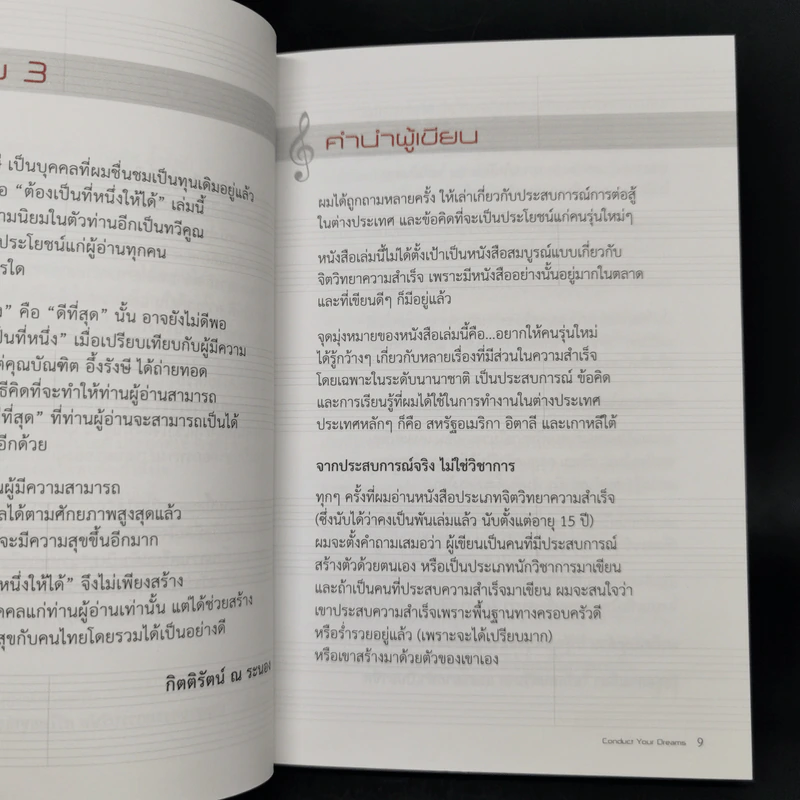 3
เป็นบุคคลที่ผมชื่นชมเป็นทุนเดิมอยู่แล้ว
“ต้องเป็นที่หนึ่งให้ได้” เล่มนี้
ามนิยมในตัวท่านอีกเป็นทวีคูณ
ประโยชน์แก่ผู้อ่านทุกคน
รใด
” คือ “ดีที่สุด” นั้น อาจยังไม่ดีพอ
ป็นที่หนึ่ง” เมื่อเปรียบเทียบกับผู้มีความ
ต่คุณบัณฑิต อึ้งรังษี ได้ถ่ายทอด
ธีคิดที่จะทำให้ท่านผู้อ่านสามารถ
ที่สุด” ที่ท่านผู้อ่านจะสามารถเป็นได้
อีกด้วย
นผู้มีความสามารถ
ลได้ตามศักยภาพสูงสุดแล้ว
จะมีความสุขขึ้นอีกมาก
หนึ่งให้ได้” จึงไม่เพียงสร้าง
คคลแก่ท่านผู้อ่านเท่านั้น แต่ได้ช่วยสร้าง
สุขกับคนไทยโดยรวมได้เป็นอย่างดี
กิตติรัตน์ ณ ระนอง
คำนำผู้เขียน
ผมได้ถูกถามหลายครั้ง ให้เล่าเกี่ยวกับประสบการณ์การต่อสู้
ในต่างประเทศ และข้อคิดที่จะเป็นประโยชน์แก่คนรุ่นใหม่ๆ
หนังสือเล่มนี้ไม่ได้ตั้งเป้าเป็นหนังสือสมบูรณ์แบบเกี่ยวกับ
จิตวิทยาความสำเร็จ เพราะมีหนังสืออย่างนั้นอยู่มากในตลาด
และที่เขียนดีๆ ก็มีอยู่แล้ว
จุดมุ่งหมายของหนังสือเล่มนี้คือ...อยากให้คนรุ่นใหม่
ได้รู้กว้างๆ เกี่ยวกับหลายเรื่องที่มีส่วนในความสำเร็จ
โดยเฉพาะในระดับนานาชาติ เป็นประสบการณ์ ข้อคิด
และการเรียนรู้ที่ผมได้ใช้ในการทำงานในต่างประเทศ
ประเทศหลักๆ ก็คือ สหรัฐอเมริกา อิตาลี และเกาหลีใต้
จากประสบการณ์จริง ไม่ใช่วิชาการ
ทุกๆ ครั้งที่ผมอ่านหนังสือประเภทจิตวิทยาความสำเร็จ
(ซึ่งนับได้ว่าคงเป็นพันเล่มแล้ว นับตั้งแต่อายุ 15 ปี)
ผมจะตั้งคำถามเสมอว่า ผู้เขียนเป็นคนที่มีประสบการณ์
สร้างตัวด้วยตนเอง หรือเป็นประเภทนักวิชาการมาเขียน
และถ้าเป็นคนที่ประสบความสำเร็จมาเขียน ผมจะสนใจว่า
เขาประสบความสำเร็จเพราะพื้นฐานทางครอบครัวดี
หรือร่ำรวยอยู่แล้ว (เพราะจะได้เปรียบมาก)
หรือเขาสร้างมาด้วยตัวของเขาเอง
Conduct Your Dreams 9